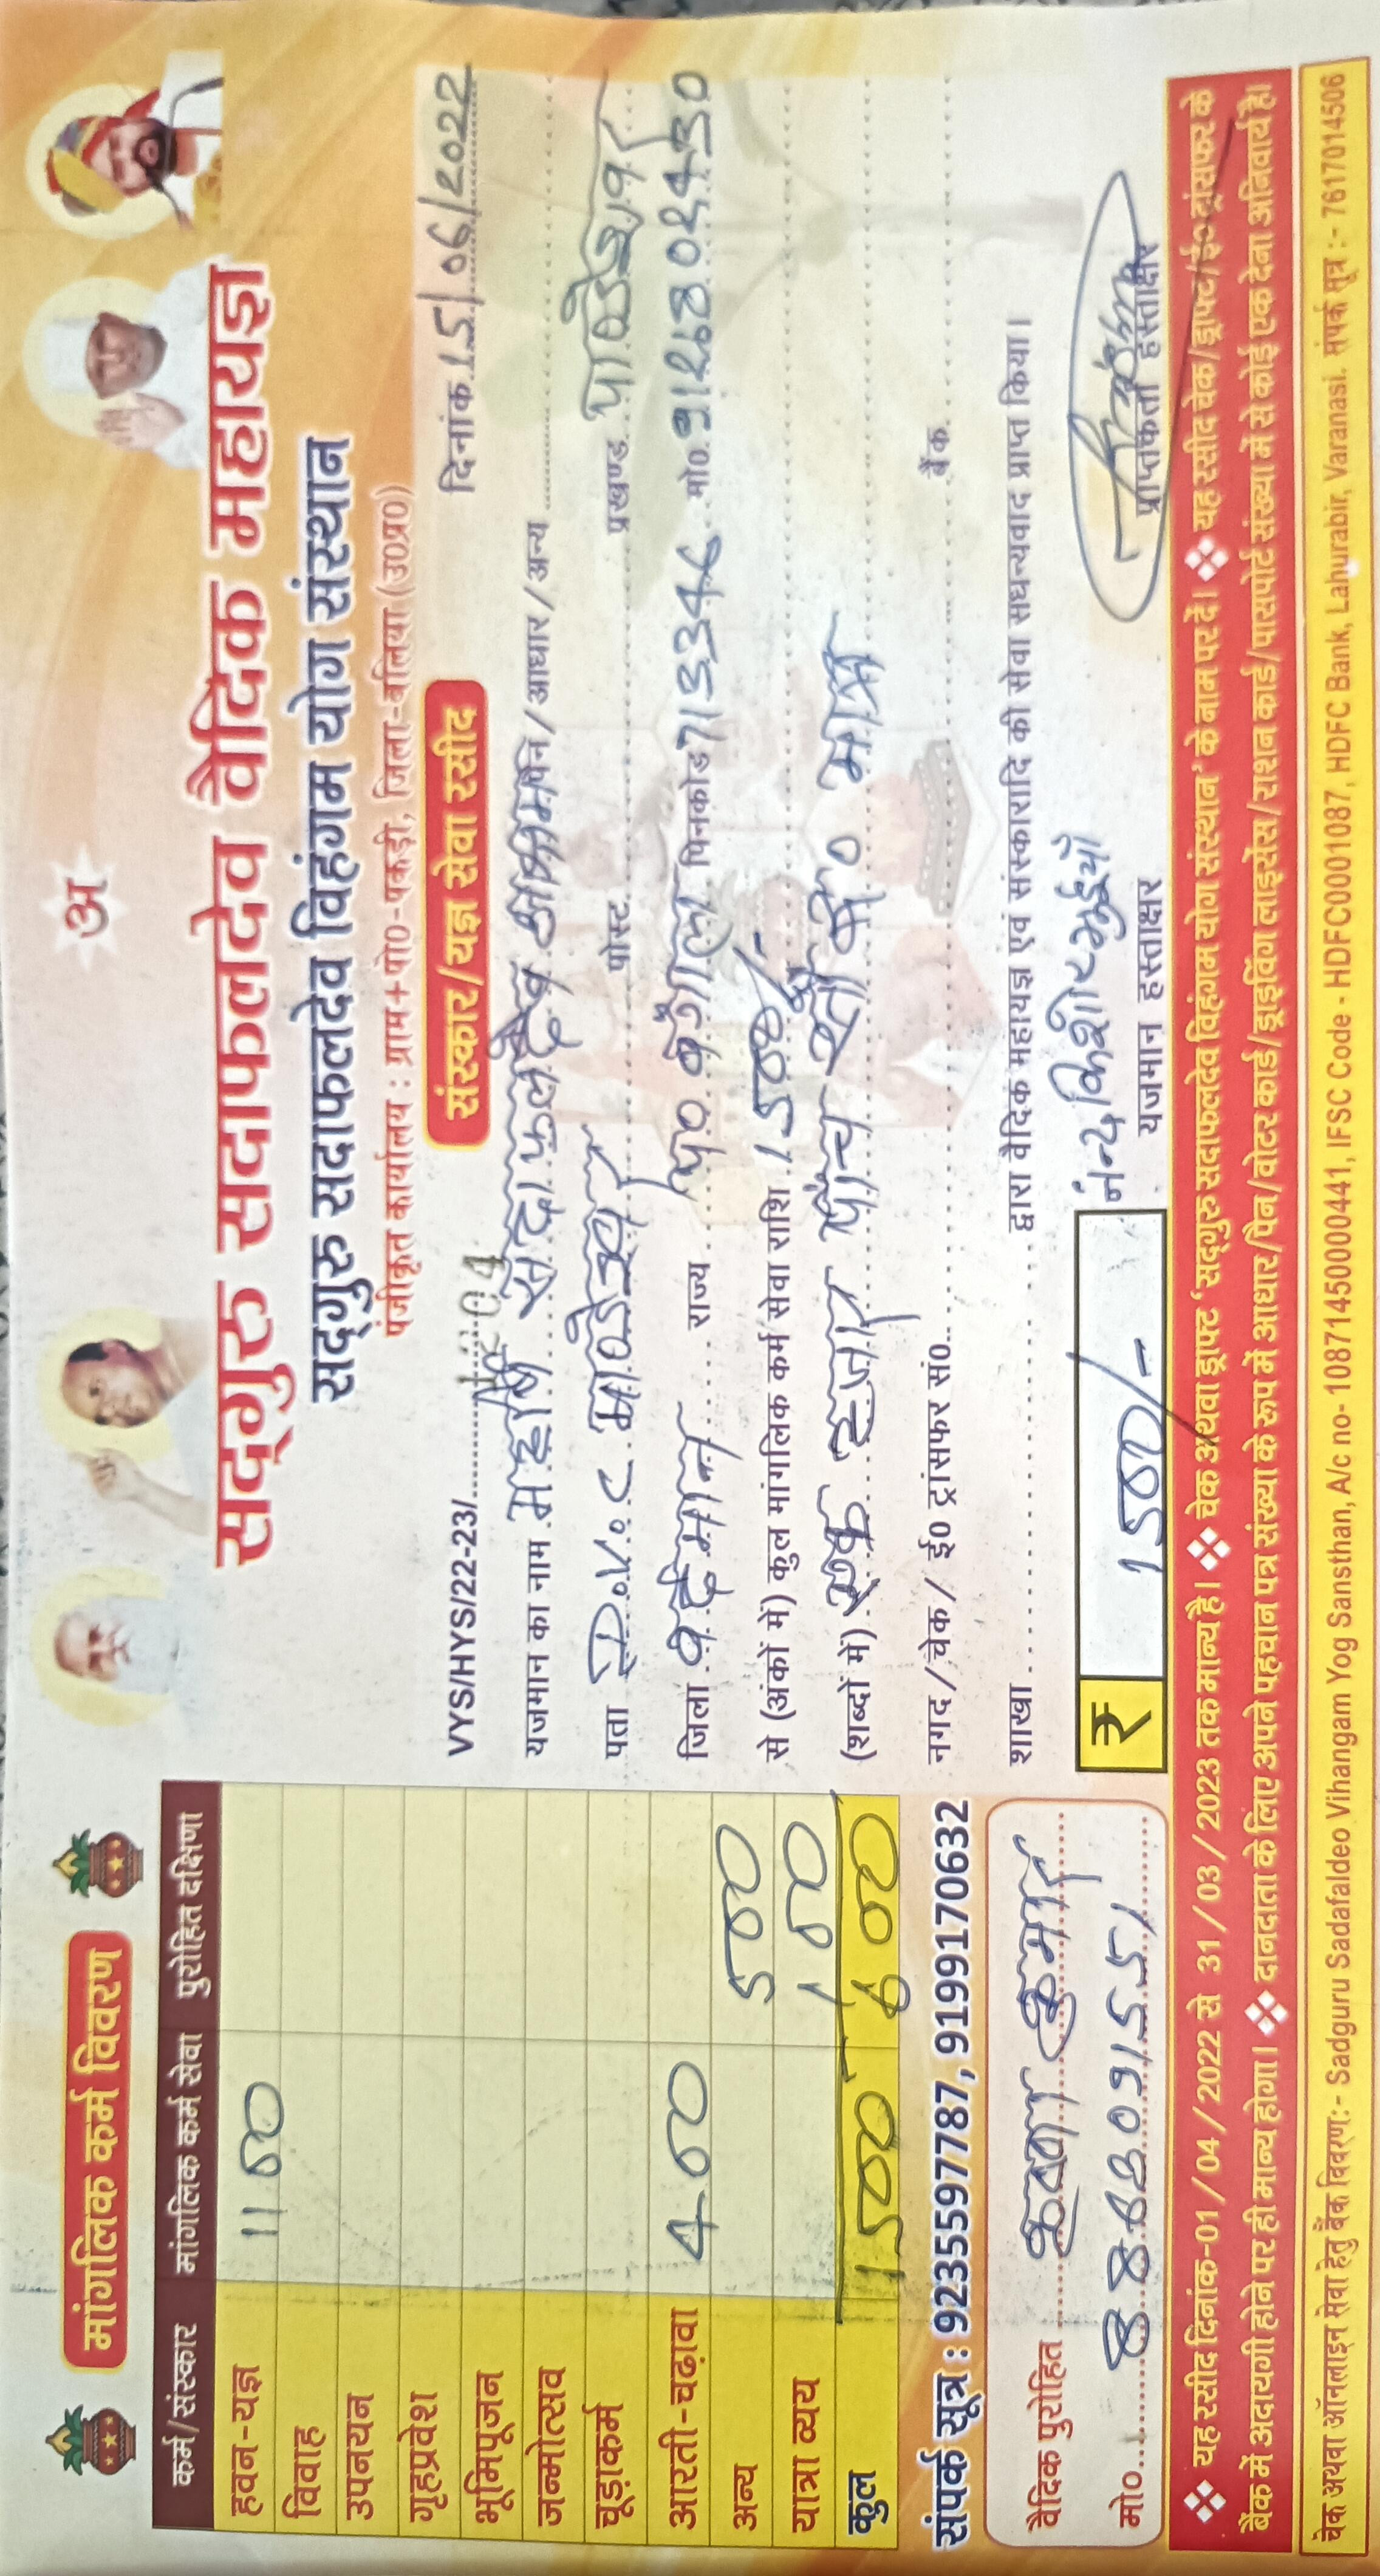 मांगलिक कर्म विवरण
कर्म/संस्कार मांगलिक कर्म सेवा पुरोहित दक्षिणा
हवन-यज्ञ 1100
विवाह
उपनयन
गृहप्रवेश
भूमिपूजन
जन्मोत्सव
चूड़ाकर्म
आरती-चढ़ावा 400
अन्य 500
यात्रा व्यय 100
कुल 1500 - 600
संपर्क सूत्र : 9235597787, 9199170632
वैदिक पुरोहित कुमार
मो०
अ
सद्गुरु सदाफलदेव वैदिक महायज्ञ
सद्गुरु सदाफलदेव विहंगम योग संस्थान
पंजीकृत कार्यालय : ग्राम+पो0-पकड़ी, जिला-बलिया (उ0प्र0)
संस्कार/यज्ञ सेवा रसीद
VYS/HYS/22-23/ 04 दिनांक 15/06/2022
यजमान का नाम महर्षि सदाफलदेव आश्रम पैन/आधार/अन्य
पता पोस्ट प्रखण्ड
जिला राज्य प० बंगाल पिनकोड 713346 मो0. 9126802430
से (अंकों में) कुल मांगलिक कर्म सेवा राशि 1500/-
(शब्दों में) एक हजार पांच सौ रू० मात्र
नगद/चेक/ ई0 ट्रांसफर सं0 बैंक
शाखा द्वारा वैदिक महायज्ञ एवं संस्कारादि की सेवा सधन्यवाद प्राप्त किया।
₹ 1500/-
यजमान हस्ताक्षर प्राप्तकर्ता हस्ताक्षर
❖ यह रसीद दिनांक-01/04/2022 से 31/03/2023 तक मान्य है। ❖ चेक अथवा ड्राफ्ट ‘सद्गुरु सदाफलदेव विहंगम योग संस्थान’ के नाम पर दें। ❖ यह रसीद चेक/ड्राफ्ट/ई0 ट्रांसफर के
बैंक में अदायगी होने पर ही मान्य होगा। ❖ दानदाता के लिए अपने पहचान पत्र संख्या के रूप में आधार/पैन/वोटर कार्ड/ड्राइविंग लाइसेंस/राशन कार्ड/पासपोर्ट संख्या में से कोई एक देना अनिवार्य है।
चेक अथवा ऑनलाइन सेवा हेतु बैंक विवरण:- Sadguru Sadafaldeo Vihangam Yog Sansthan, A/c no- 10871450000441, IFSC Code - HDFC0001087, HDFC Bank, Lahurabir, Varanasi. संपर्क सूत्र :- 7617014506